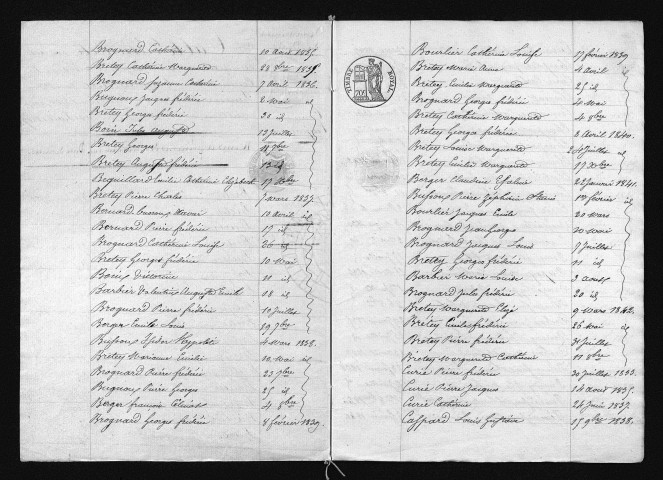 Brognard Catherine 10 Aout 1835.
Bretey Catherine Marguerite 28 8bre 1835.
Brognard Suzanne Catherine 7 Avril 1836.
Bugnon Jacques frédéric 2 Mai id
Bretey George frédéric 30 id
Borin Jules Auguste 13 Juillet
Bretey George 11 7bre
Bretey Auguste frédéric 13 id
Beguillard Emilie Catherine Elizabeth 17 Xbre
Bretey Pierre Charles 7 Mars 1837.
Bernard 10 Avril id
Bernard Pierre frédéric 17 id
Brognard Catherine Louise 26 id
Bretey Georges frédéric 10 Mai
Victorine 11 id
Barbier Valentin Auguste Emile 18 id
Brognard Pierre frédéric 10 Juillet
Berger Emile Louis 29 7bre
Buffons Isidor Hypolite 4 Mars 1838.
Bretey Marianne Emilie 10 Mai id
Brognard Pierre frédéric 23 7bre
Bugnon Pierre Georges 25 id
Berger françois 4 8bre
Brognard Georges frédéric 8 février 1839.
TIMBRE ROYAL
Bourlier Catherine Louise 17 février 1839.
Bretey Marie Anne 4 Avril
Bretey Emilie Marguerite 25 id
Brognard Georges frédéric 4 Mai
Bretey Catherine Marguerite 4 8bre
Bretey George frédéric 3 Avril 1840.
Bretey Louise Marguerite Juillet id
Bretey Emilie Marguerite 17 Xbre
Berger Claudine 22 Janvier 1841.
Buffons Pierre Zéphirin 1er février id
Bourlier Jacques Emile 20 Mars
Brognard Jean George 20 Mai
Brognard Jacques Louis 7 Juillet
Bretey Georges frédéric 11 id
Barbier Marie Louise 2 Aout
Brognard Jules frédéric 20 id
Bretey Marguerite 9 Mars 1842.
Bretey Emile frédéric 26 Mai
Bretey Pierre frédéric 31 Juillet
Bretey Marguerite Catherine 11 8bre
Curié Pierre frédéric 30 Juillet 1833.
Curié Pierre Jacques 24 Aout 1835.
Curié Catherine 24 Juin 1837.
Caspard Louis Gustave 15 9bre 1838.